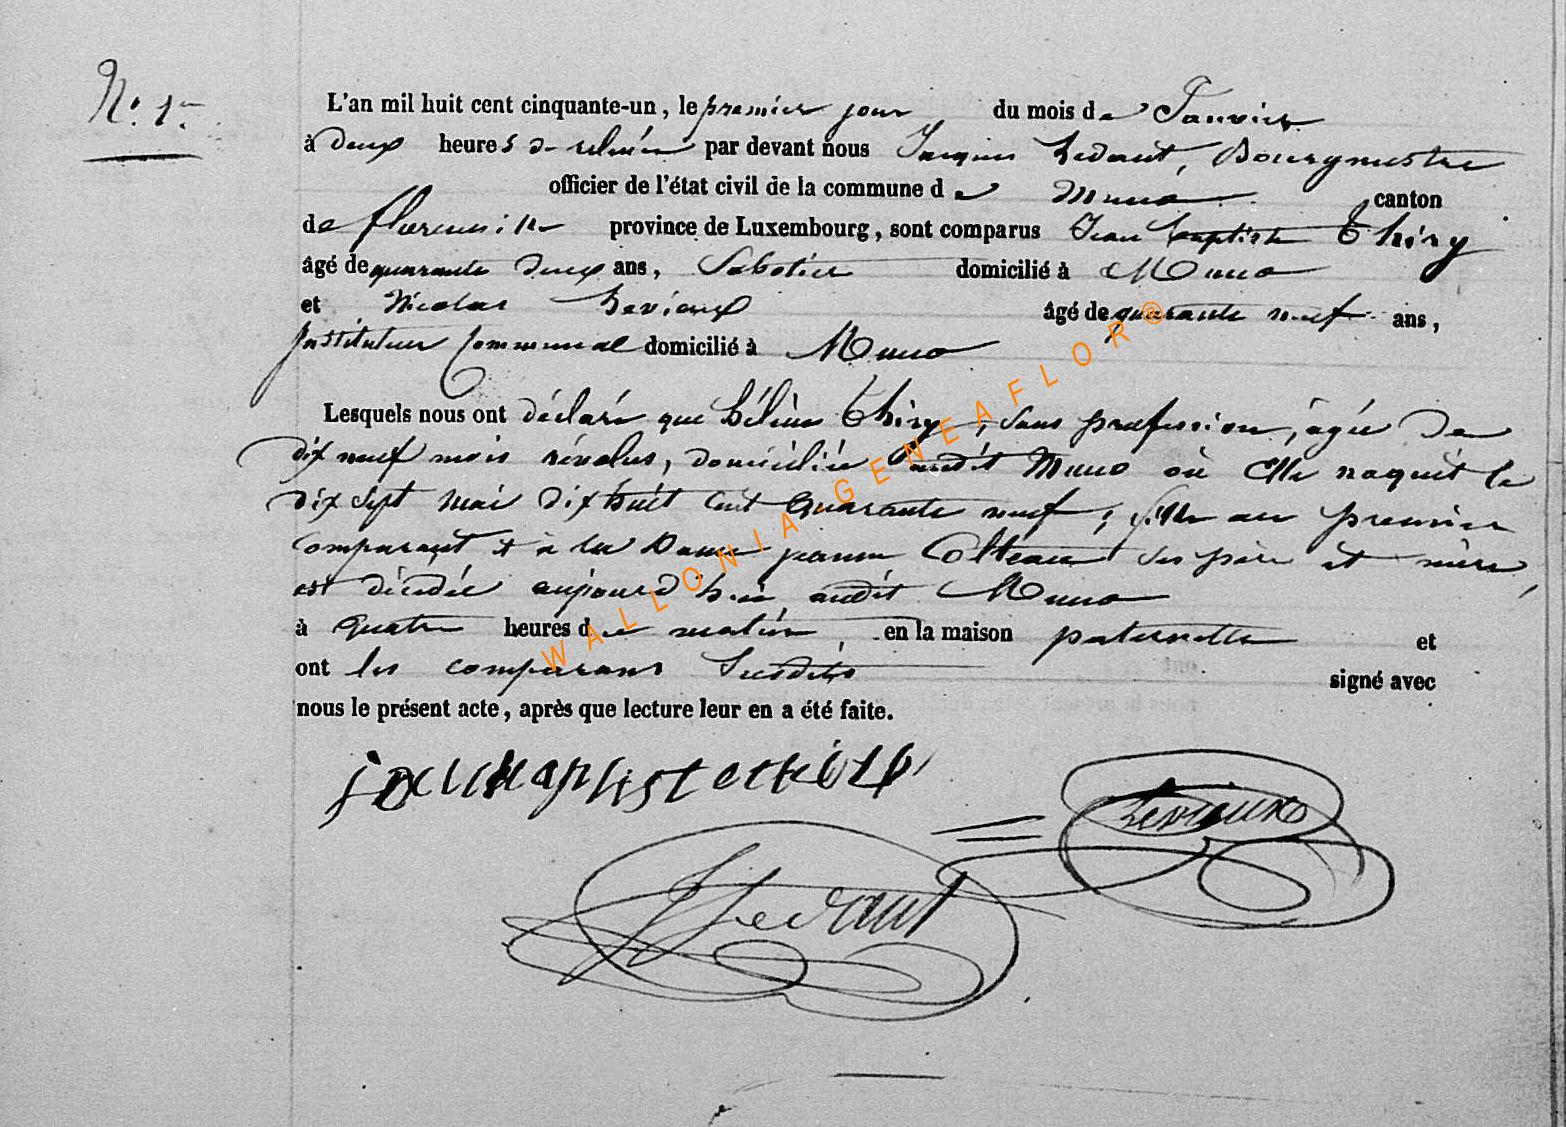 N.° 1er
L'an mil huit cent cinquante-un, le premier jour du mois de Janvier
à deux heures de relevée par devant nous Jacques Ledant, Bourgmestre
officier de l'état civil de la commune de Muno canton
de florenville province de Luxembourg, sont comparus Jean baptiste Thiry
âgé de quarante deux ans, Sabotier domicilié à Muno
et Nicolas Devieux âgé de quarante neuf ans,
Instituteur Communal domicilié à Muno
Lesquels nous ont déclaré que hélène Thiry, sans profession, âgée de
dix neuf mois révolus, domiciliée audit Muno où Elle naquit le
dix sept mai dix huit cent quarante neuf; fille au premier
comparant et à la Dame jeanne Colteaux ses père et mère,
est décédée aujourd'hui audit Muno
à quatre heures de matin, en la maison paternelle et
ont les comparans Susdits signé avec
nous le présent acte, après que lecture leur en a été faite.
jean baptiste thiry
Devieux
J Ledant
WALLONIA GENEAFLOR®